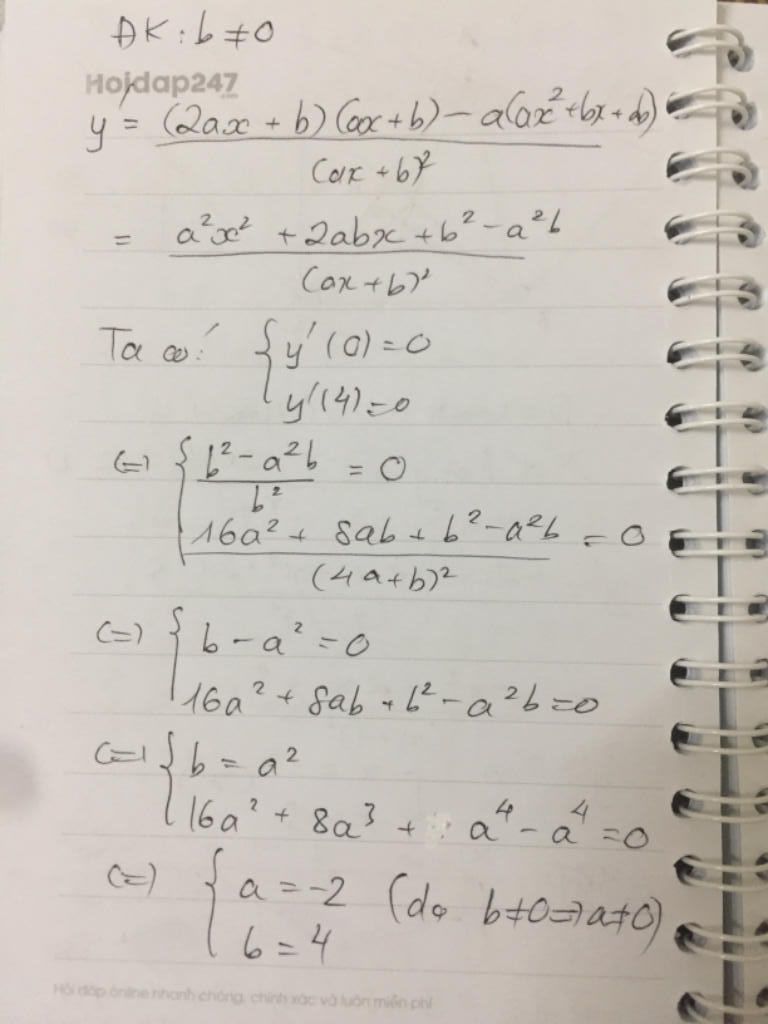 ĐK: b ≠ 0
Hoidap247
.com
y' = (2ax + b)(ax + b) - a(ax² + bx + ab)
(ax + b)²
= a²x² + 2abx + b² - a²b
(ax + b)²
Ta có: { y'(0) = 0
y'(4) = 0
(=) { b² - a²b / b² = 0
16a² + 8ab + b² - a²b = 0
(4a + b)²
(=) { b - a² = 0
16a² + 8ab + b² - a²b = 0
(=) { b = a²
16a² + 8a³ + a⁴ - a⁴ = 0
(=) { a = -2 (do b ≠ 0 => a ≠ 0)
b = 4
Hỏi đáp online nhanh chóng, chính xác và luôn miễn phí